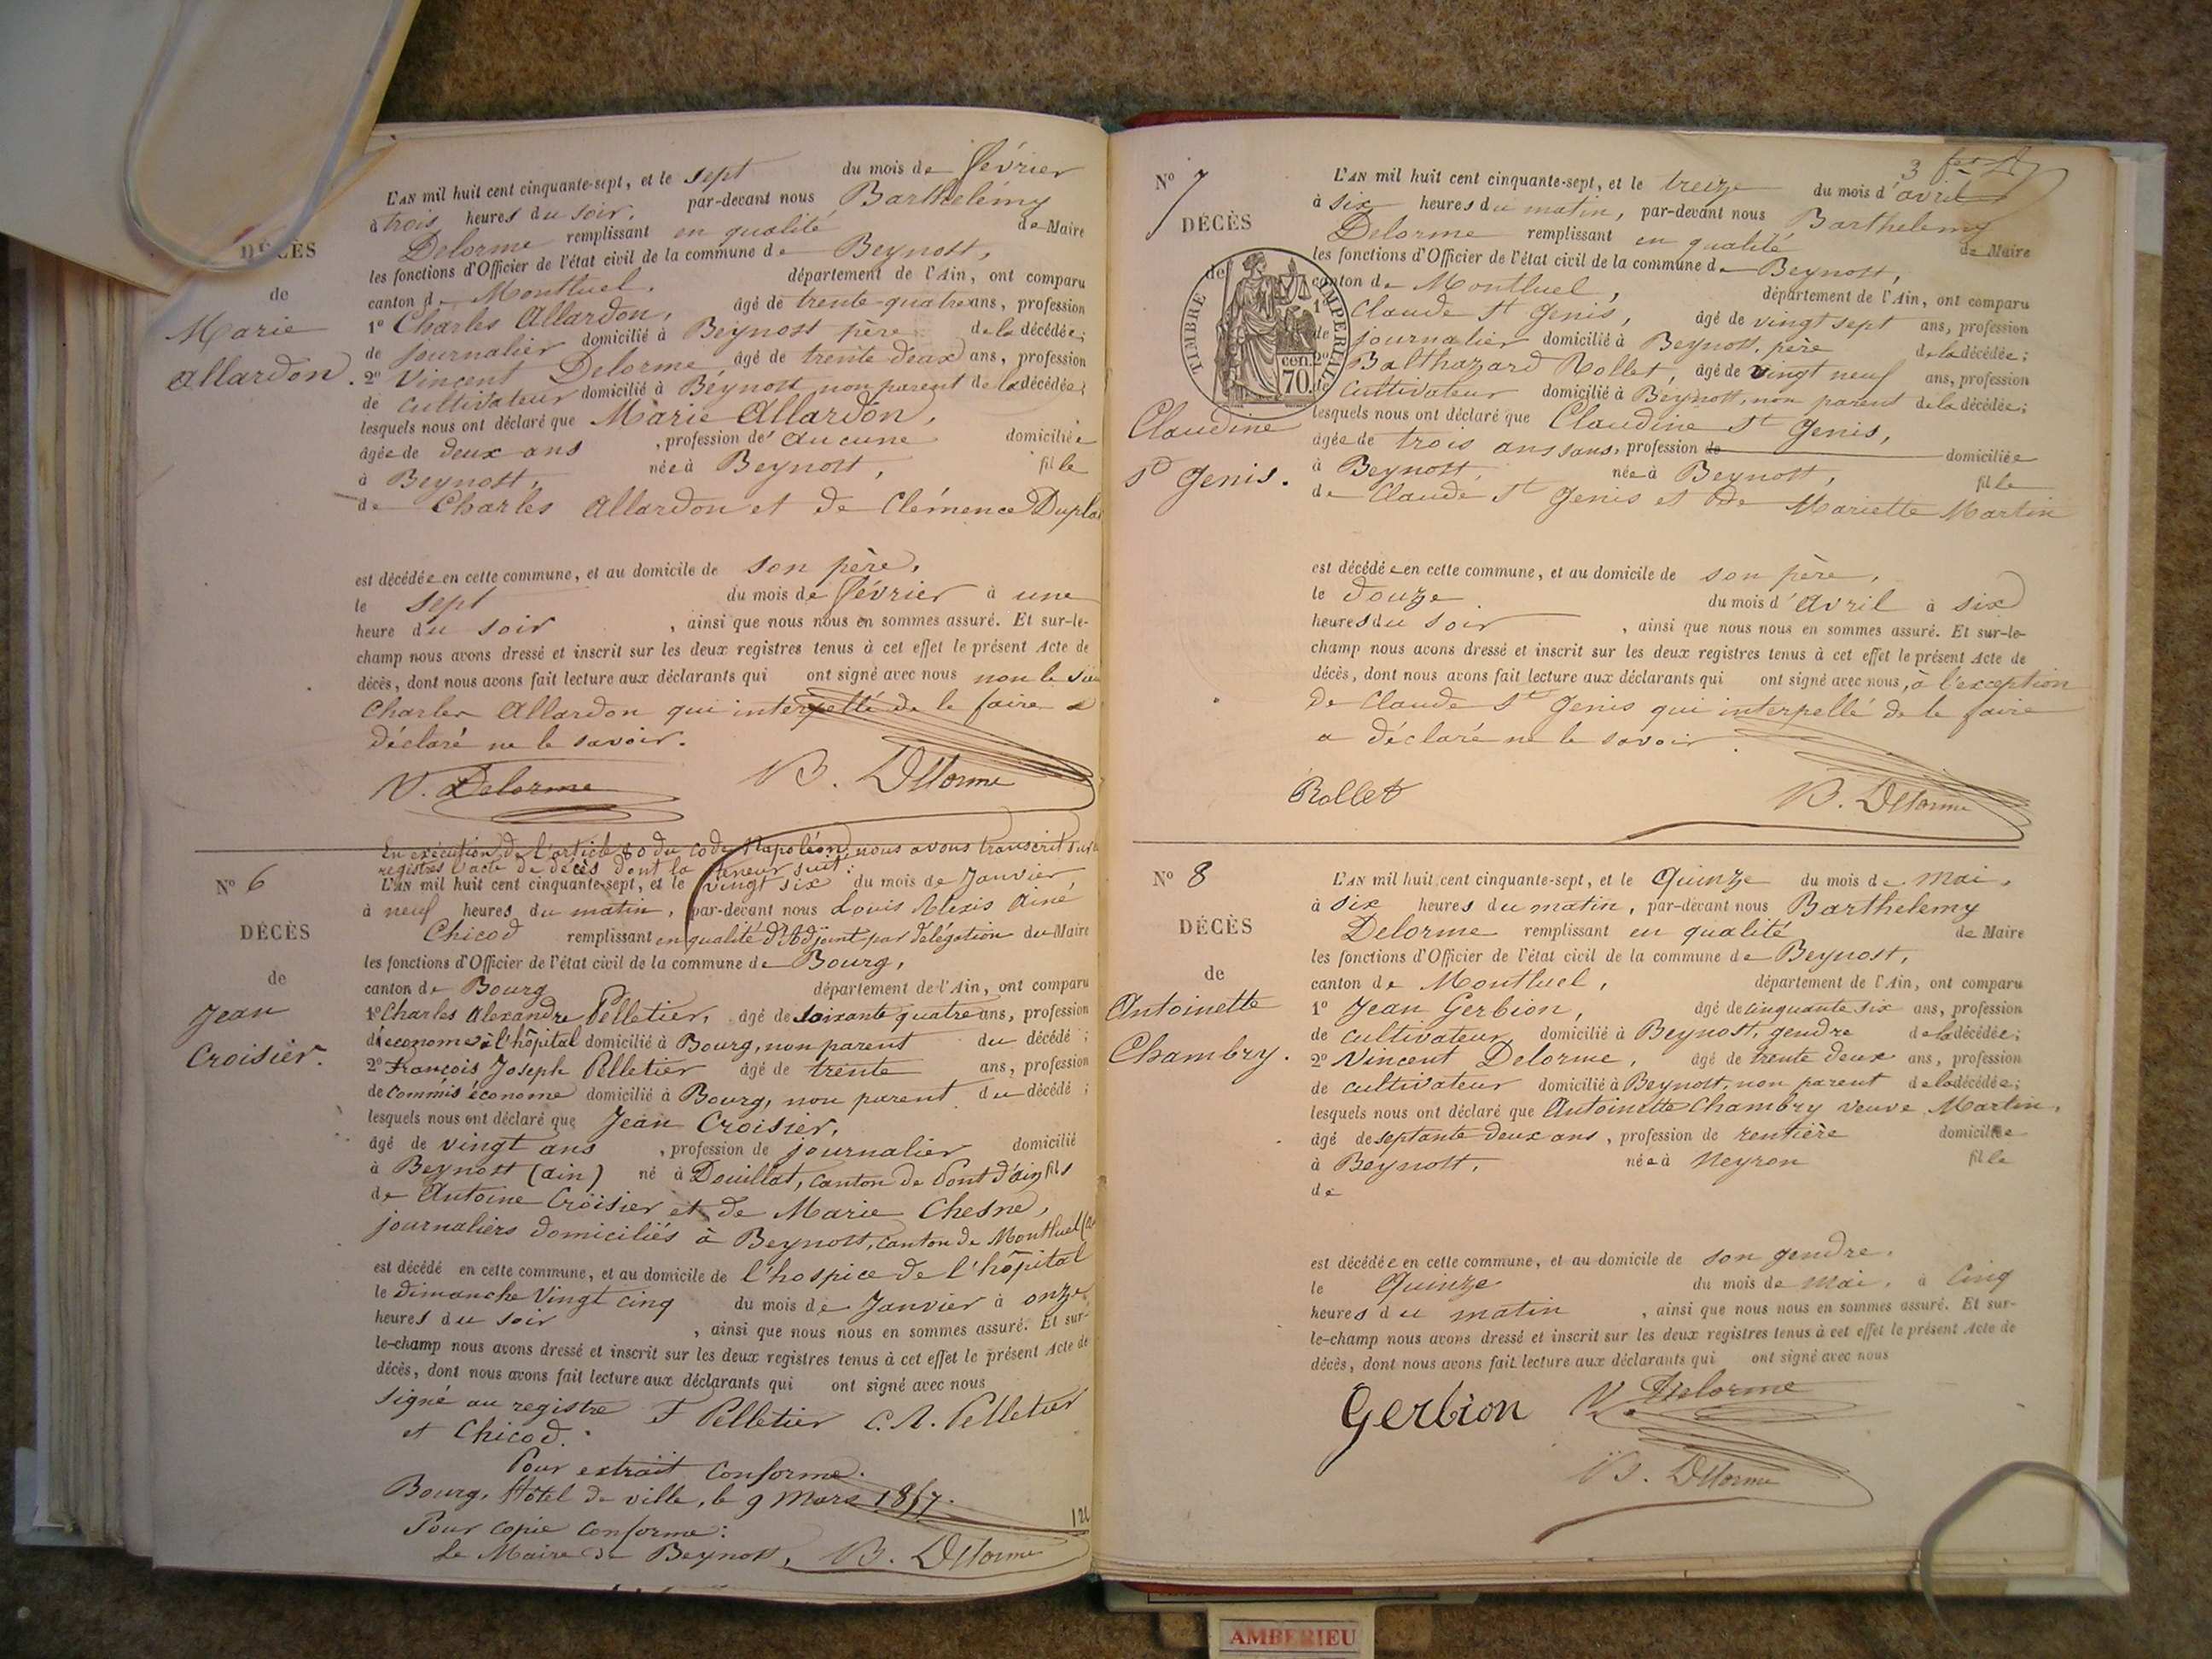 DÉCÈS
de
Marie
Allardon.
L'AN mil huit cent cinquante-sept, et le sept du mois de février
à trois heures du soir, par-devant nous Barthelémy
Delorme remplissant en qualité de Maire
les fonctions d'Officier de l'état civil de la commune de Beynost,
canton de Montluel, département de l'Ain, ont comparu
1° Charles Allardon, âgé de trente-quatre ans, profession
de journalier domicilié à Beynost père de la décédée;
2° Vincent Delorme, âgé de trente deux ans, profession
de cultivateur domicilié à Beynost non parent de la décédée;
lesquels nous ont déclaré que Marie Allardon,
âgée de deux ans, profession de aucune domiciliée
à Beynost, née à Beynost, fille
de Charles Allardon et de Clémence
est décédée en cette commune, et au domicile de son père,
le sept du mois de février à une
heure du soir, ainsi que nous nous en sommes assuré. Et sur-le-
champ nous avons dressé et inscrit sur les deux registres tenus à cet effet le présent Acte de
décès, dont nous avons fait lecture aux déclarants qui ont signé avec nous non le
Charles Allardon qui interpellé de le faire a
déclaré ne le savoir.
V. Delorme B. Delorme
N° 6
DÉCÈS
de
Jean
Croisier.
En exécution de l'article 80 du code Napoléon, nous avons transcrit sur
registres l'acte de décès dont la teneur suit:
L'AN mil huit cent cinquante-sept, et le vingt six du mois de Janvier,
à neuf heures du matin, par-devant nous Louis Alexis Aimé
Chicod remplissant en qualité d'Adjoint par délégation du Maire
les fonctions d'Officier de l'état civil de la commune de Bourg,
canton de Bourg département de l'Ain, ont comparu
1° Charles Alexandre Pelletier, âgé de soixante quatre ans, profession
d'économe à l'hôpital domicilié à Bourg, non parent du décédé;
2° François Joseph Pelletier âgé de trente ans, profession
de commis économe domicilié à Bourg, non parent du décédé;
lesquels nous ont déclaré que Jean Croisier,
âgé de vingt ans, profession de journalier domicilié
à Beynost (ain) né à Douillat, canton de Pont d'ain, fils
de Antoine Croisier et de Marie Chesne,
journaliers domiciliés à Beynost, canton de Montluel
est décédé en cette commune, et au domicile de l'hospice de l'hôpital
le dimanche vingt cinq du mois de Janvier à onze
heures du soir, ainsi que nous nous en sommes assuré. Et sur-
le-champ nous avons dressé et inscrit sur les deux registres tenus à cet effet le présent Acte de
décès, dont nous avons fait lecture aux déclarants qui ont signé avec nous
Signé au registre F Pelletier C. A. Pelletier
et Chicod.
Pour extrait conforme.
Bourg, Hôtel de ville, le 9 Mars 1857.
Pour copie conforme:
Le Maire de Beynost, B. Delorme
N° 7
DÉCÈS
de
Claudine
St Genis.
TIMBRE IMPERIAL
70 cen.
L'AN mil huit cent cinquante-sept, et le treize du mois d'avril
à six heures du matin, par-devant nous Barthelemy
Delorme remplissant en qualité de Maire
les fonctions d'Officier de l'état civil de la commune de Beynost,
canton de Montluel, département de l'Ain, ont comparu
1° Claude St Genis, âgé de vingt sept ans, profession
de journalier domicilié à Beynost, père de la décédée;
2° Balthazard Rollet, âgé de vingt neuf ans, profession
de cultivateur domicilié à Beynost, non parent de la décédée;
lesquels nous ont déclaré que Claudine St Genis,
âgée de trois ans sans, profession de domiciliée
à Beynost, née à Beynost, fille
de Claude St Genis et de Mariette Martin
est décédée en cette commune, et au domicile de son père,
le douze du mois d'Avril à six
heures du soir, ainsi que nous nous en sommes assuré. Et sur-le-
champ nous avons dressé et inscrit sur les deux registres tenus à cet effet le présent Acte de
décès, dont nous avons fait lecture aux déclarants qui ont signé avec nous, à l'exception
de Claude St Genis qui interpellé de le faire
a déclaré ne le savoir.
Rollet B. Delorme
N° 8
DÉCÈS
de
Antoinette
Chambry.
L'AN mil huit cent cinquante-sept, et le Quinze du mois de Mai,
à six heures du matin, par-devant nous Barthelemy
Delorme remplissant en qualité de Maire
les fonctions d'Officier de l'état civil de la commune de Beynost,
canton de Montluel, département de l'Ain, ont comparu
1° Jean Gerbion, âgé de cinquante six ans, profession
de cultivateur domicilié à Beynost, gendre de la décédée;
2° Vincent Delorme, âgé de trente deux ans, profession
de cultivateur domicilié à Beynost, non parent de la décédée;
lesquels nous ont déclaré que Antoinette Chambry veuve Martin,
âgé de septante deux ans, profession de rentière domiciliée
à Beynost, née à Neyron fille
de
est décédée en cette commune, et au domicile de son gendre,
le Quinze du mois de Mai, à cinq
heures du matin, ainsi que nous nous en sommes assuré. Et sur-
le-champ nous avons dressé et inscrit sur les deux registres tenus à cet effet le présent Acte de
décès, dont nous avons fait lecture aux déclarants qui ont signé avec nous
Gerbion V. Delorme
B. Delorme
AMBERIEU